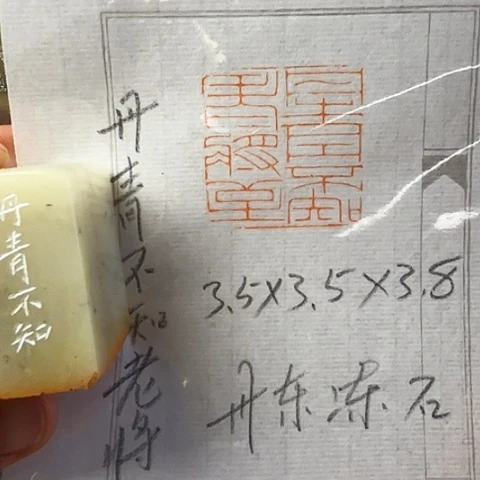 丹青不知
丹青不知老将
3.5×3.5×3.8
丹东冻石